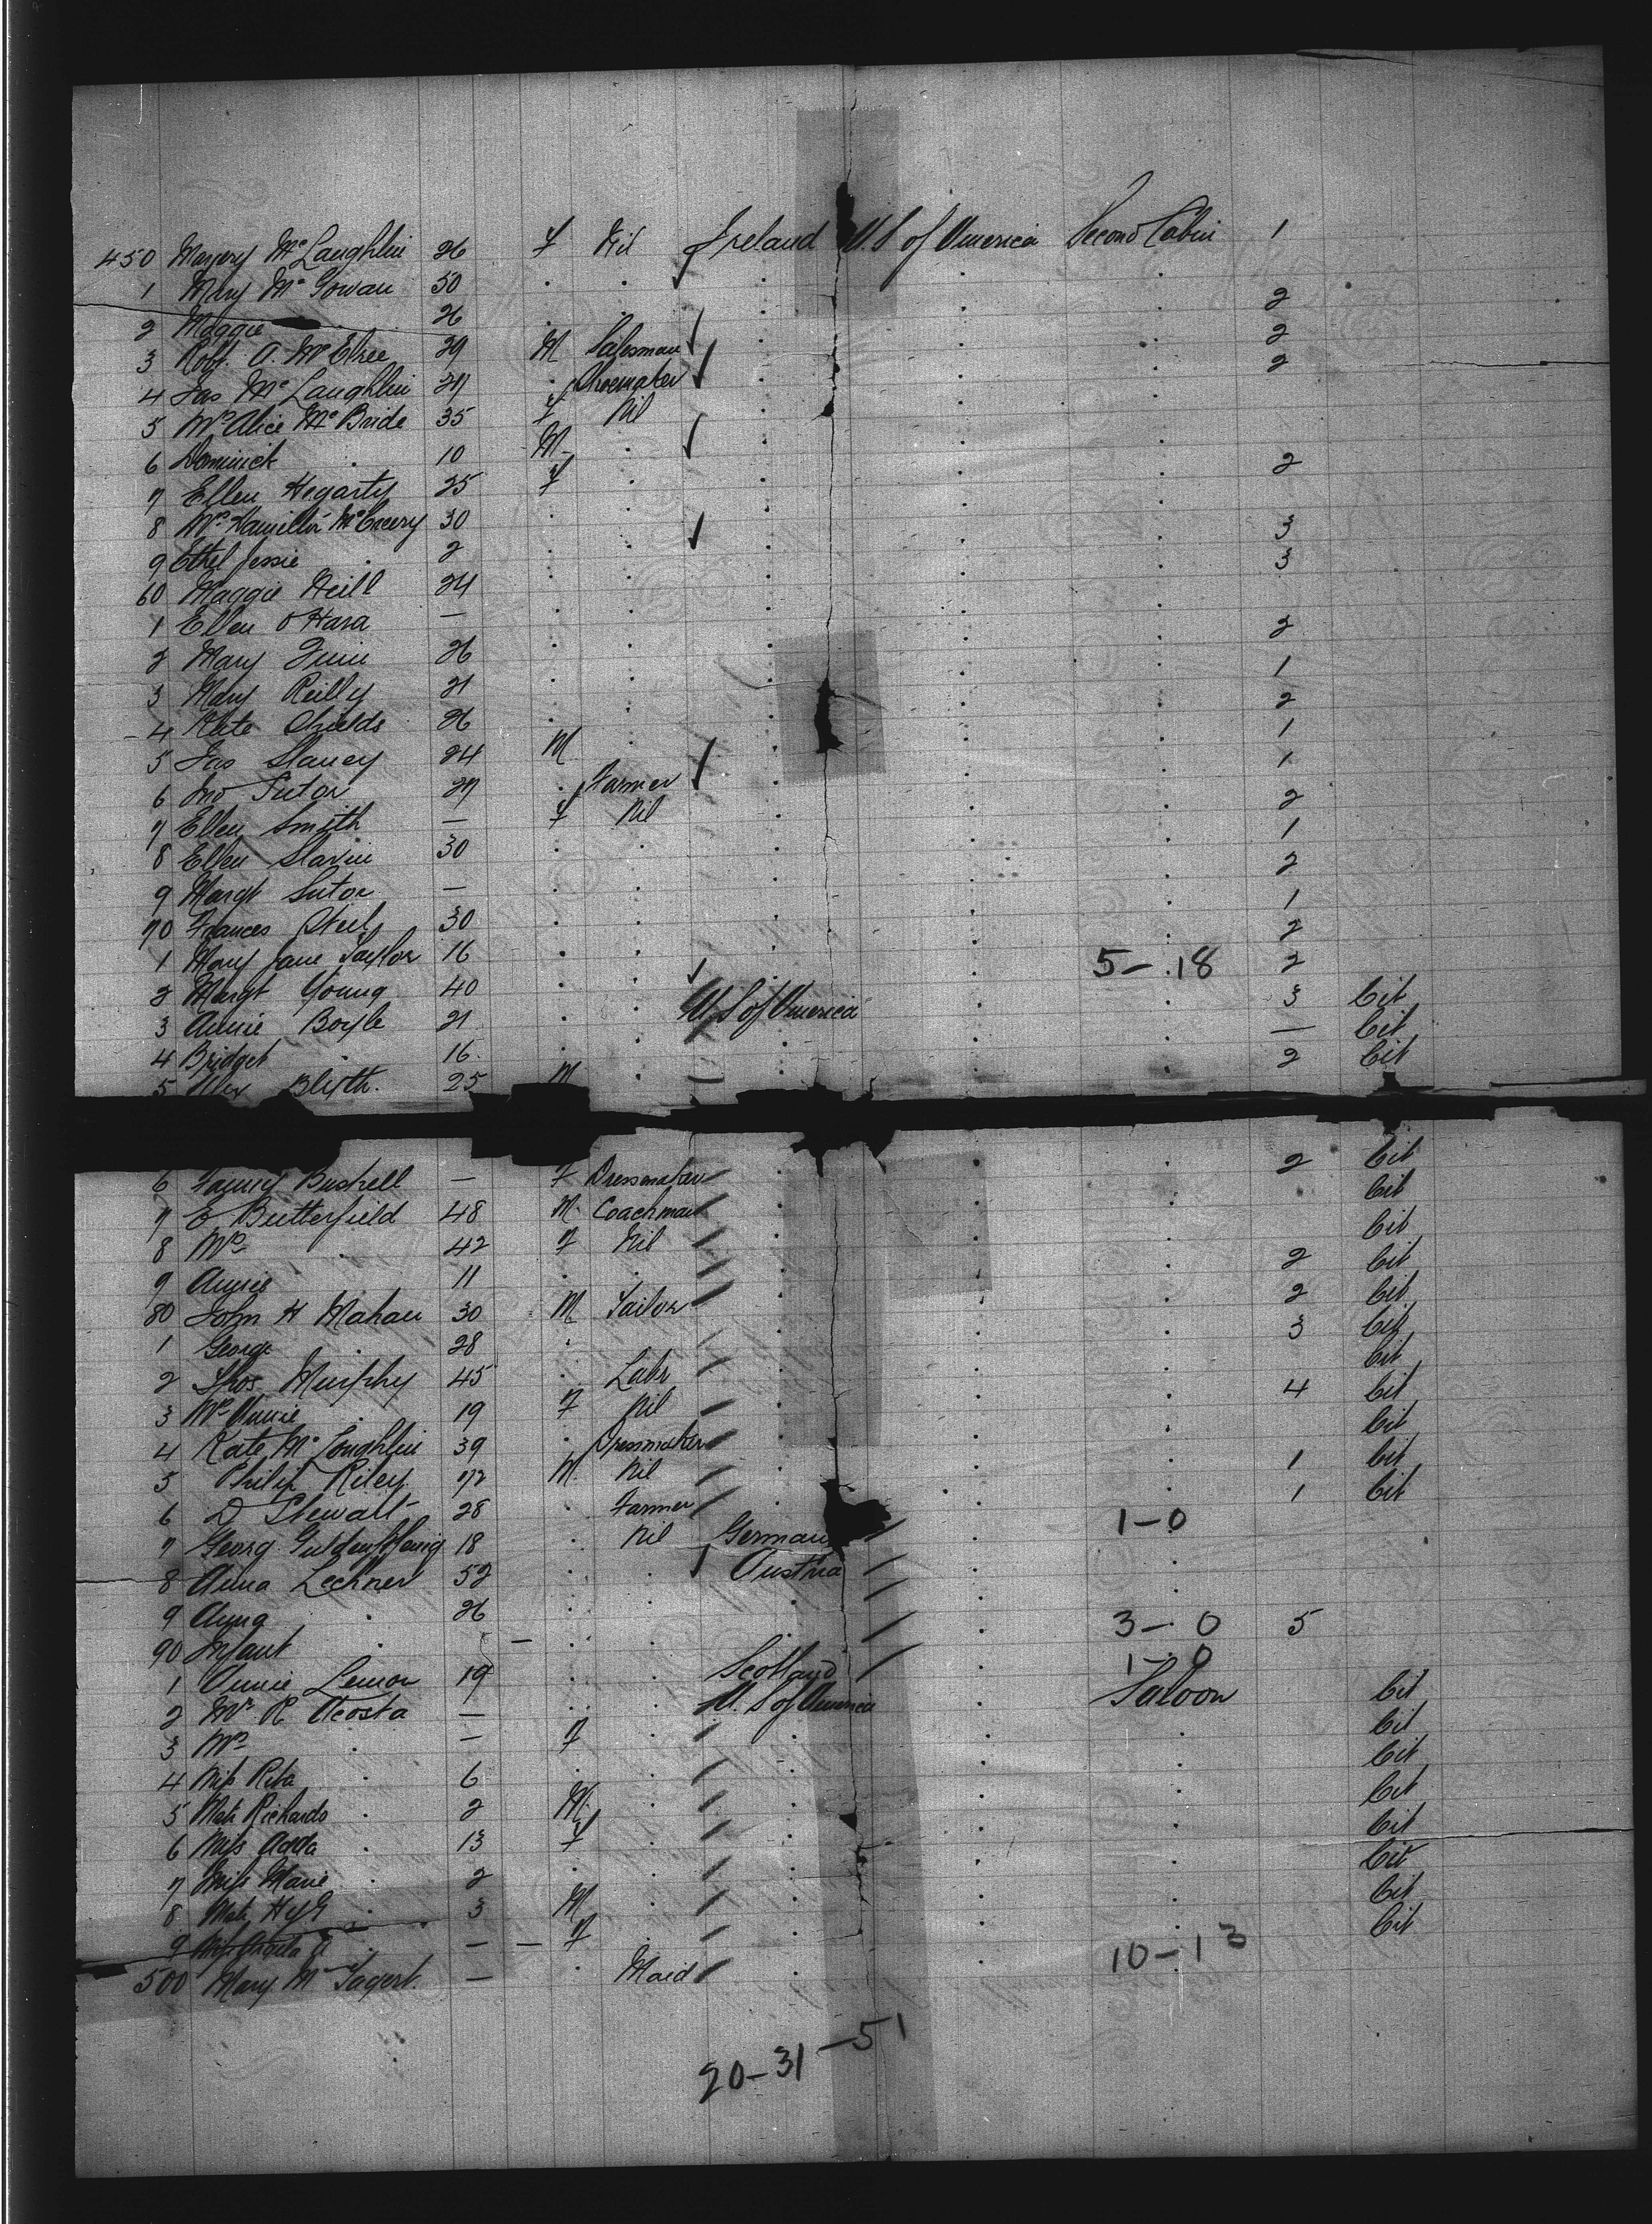 450 Margery McLaughlin 26 F Nil Ireland U.S of America Second Cabin 1
1 Mary McGowan 50 . . . . .
2 Maggie 26 . . . . . 2
3 Robt. A. McElree 29 M Salesman . . . 2
4 Jas McLaughlin 27 . Shoemaker . . . 2
5 Mrs Alice McBride 35 F Nil . . .
6 Dominick . 10 M . . . .
7 Ellen Hegarty 25 F . . . . 2
8 Mrs Hamilton McCreery 30 . . . . .
9 Ethel Jessie . 2 . . . . . 3
60 Maggie Neill 24 . . . . . 3
1 Ellen O'Hara — . . . . .
2 Mary Quin 26 . . . . . 2
3 Mary Reilly 21 . . . . . 1
4 Kate Shields 26 . . . . . 2
5 Jas Slaney 24 M . . . . 1
6 Jno Sutor 27 . Farmer . . . 1
7 Ellen Smith — F Nil . . . 2
8 Ellen Slavin 30 . . . . . 1
9 Margt Sutor — . . . . . 2
70 Frances Steel 30 . . . . . 1
1 Mary Jane Taylor 16 . . . . . 2
2 Margt Young 40 . . . . 5 - 18 2
3 Annie Boyle 21 . . U.S of America . . 3 Cit
4 Bridget . 16 . . . . . — Cit
5 Alex Blyth. 25 M . . . . 2 Cit
6 Bushell — F Dressmaker . . 2 Cit
7 E Butterfield 48 M. Coachman . . . Cit
8 Mrs . 42 F Nil . . . Cit
9 Annie . 11 . . . . . 2 Cit
80 John H Mahan 30 M Tailor . . . 2 Cit
1 George 28 . . . . 3 Cit
2 Thos. Murphy 45 . Labr . . . Cit
3 Mrs Annie . 19 F Nil . . . 4 Cit
4 Kate McLoughlin 39 . Dressmaker . . . Cit
5 Philip Riley 72 M. Nil . . . 1 Cit
6 D Stewart 28 . Farmer . . . 1 Cit
7 Georg 18 . Nil Germany . 1-0
8 Anna Lechner 52 . . Austria . .
9 Anna . 26 . . . . .
90 Infant . — . . . . 3-0 5
1 Annie Lemon 19 . . Scotland . 1-0
2 Mr R Acosta — . . U.S of America . Saloon Cit
3 Mrs . — F . . . . Cit
4 Miss Rita . 6 . . . . . Cit
5 Mast Richards . 2 M. . . . . Cit
6 Miss Adda . 13 F . . . . Cit
7 Miss Marie . 2 . . . . . Cit
8 Mast . 3 M . . . . Cit
9 Miss . — — F . . . . Cit
500 Mary McTagert. — . Maid . . 10-13
20-31-51